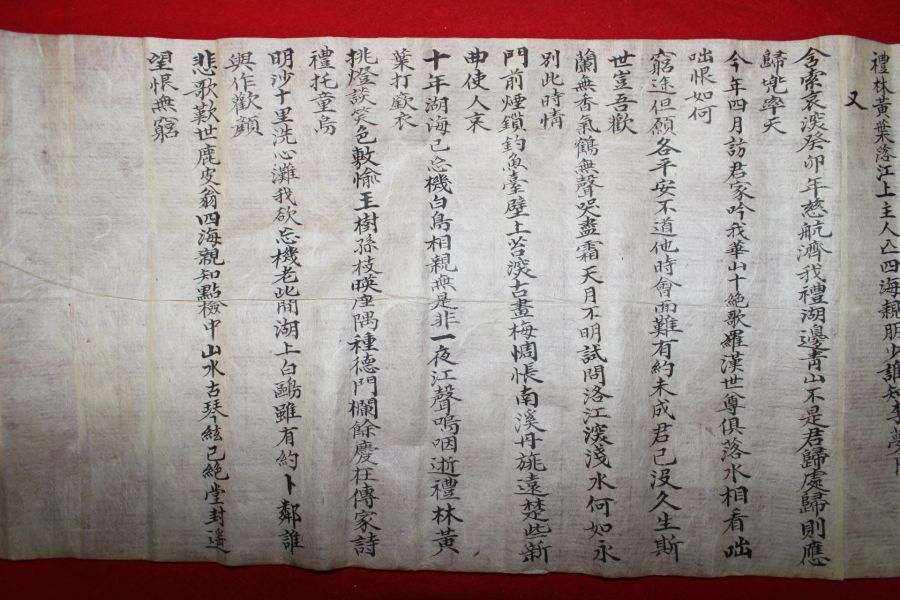 禮林黃葉落江上主人亡四海親朋少誰知李夢
又
含索哀深癸卯年慈航濟我禮湖邊靑山不是君歸處歸則應
歸兜率天
今年四月訪君家吟我華山十絶歌羅漢世尊俱落水相看咄
咄恨如何
窮途但願各平安不道他時會面難有約未成君已沒久生斯
世豈吾歡
蘭無香氣鶴無聲哭盡霜天月不明試問洛江深淺水何如永
別此時情
門前煙鎖釣魚臺壁上苔深古畫梅惆悵南溪丹旐遠楚些新
曲使人哀
十年湖海已忘機白鳥相親無是非一夜江聲嗚咽逝禮林黃
葉打歛衣
挑燈談笑色敷愉玉樹孫枝暎座隅種德門欄餘慶在傳家詩
禮托童烏
明沙十里洗心灘我欲忘機老此間湖上白鷗雖有約卜鄰誰
與作歡顔
悲歌歎世鹿皮翁四海親知點檢中山水古琴絃已絶堂封遙
望恨無窮